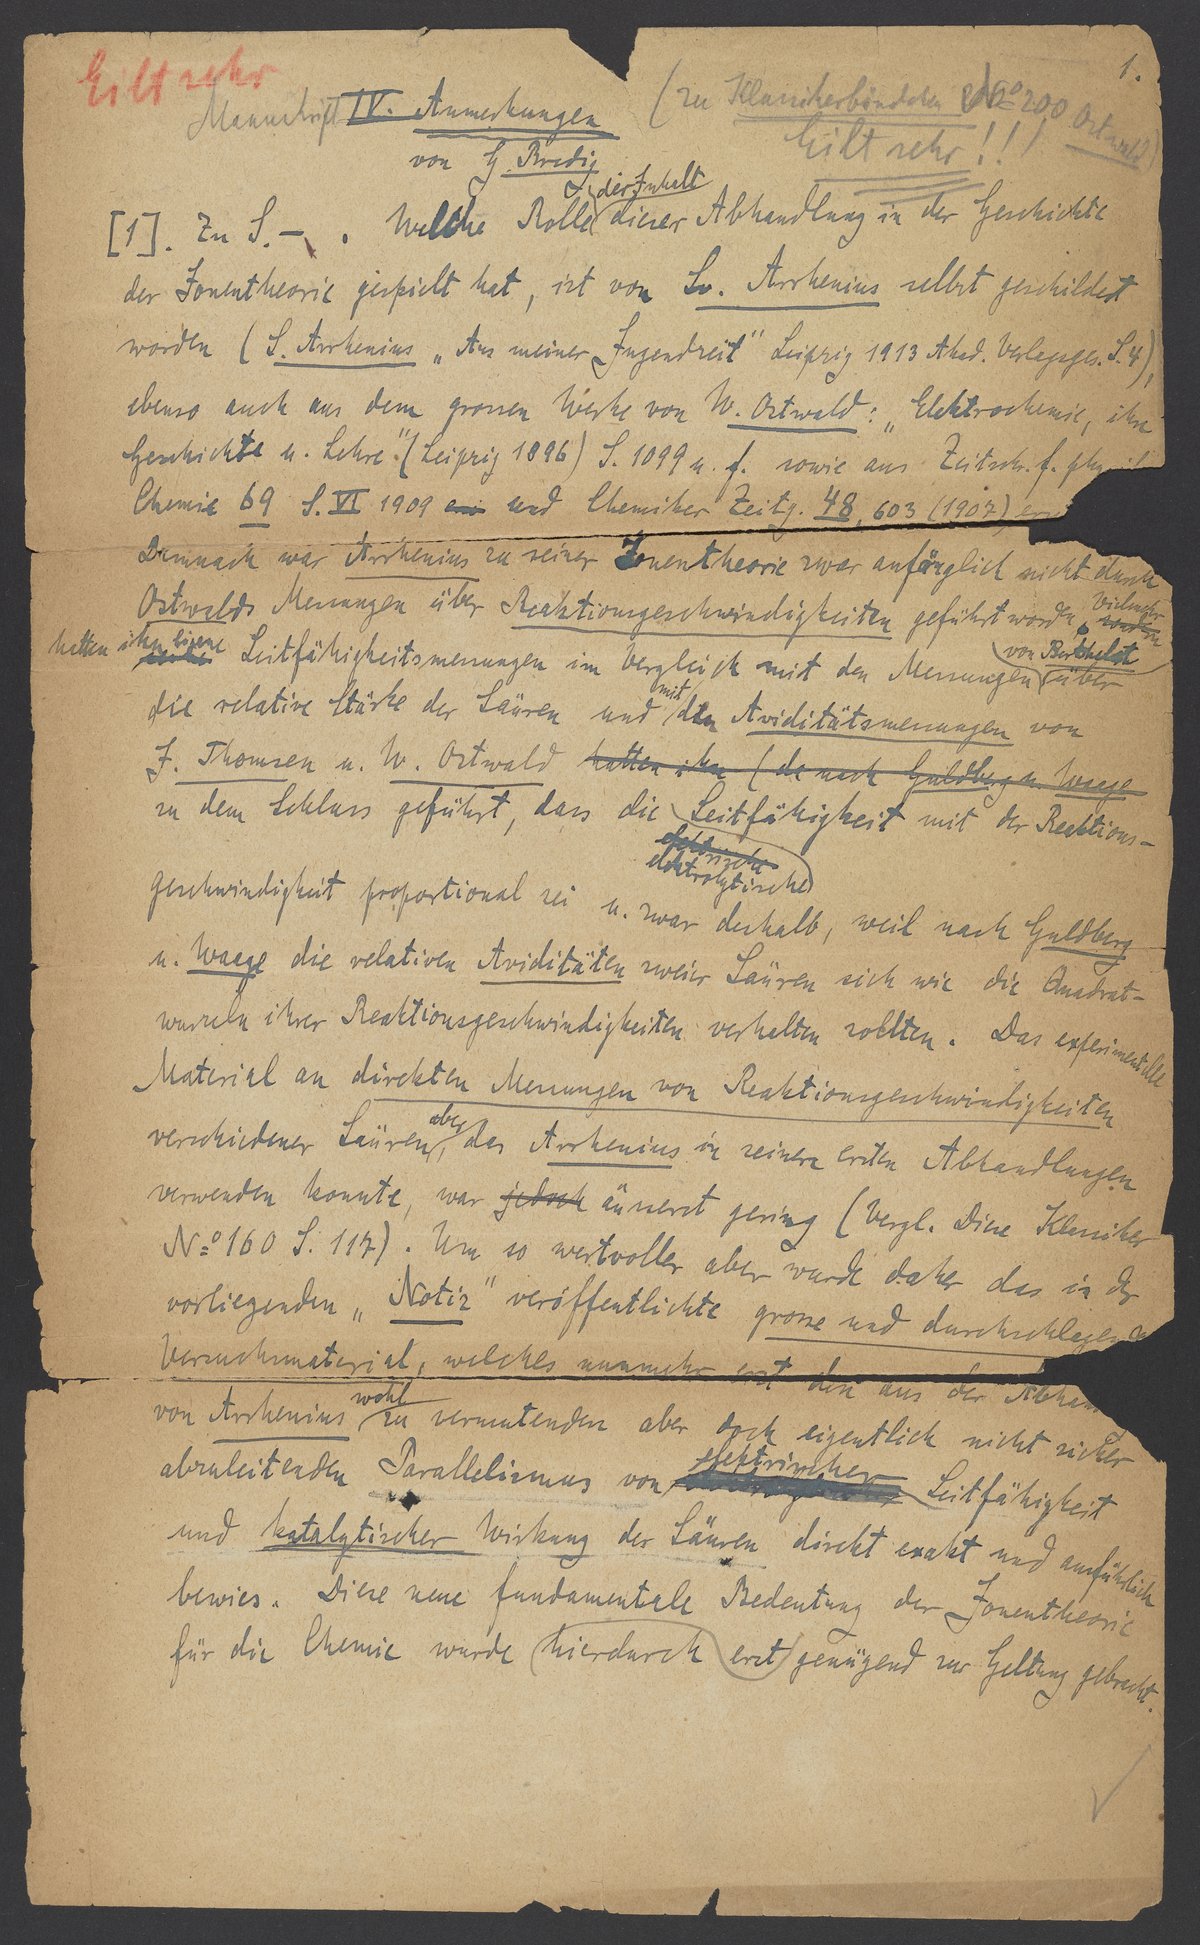 1.
Eilt sehr
(zu Klassikerbändchen No 200 Ostwald)
Manuskript IV. Anmerkungen
Eilt sehr!!!
von G. Bredig
der Inhalt
[1]. Zu S. – . Welche Rolle dieser Abhandlung in der Geschichte
der Ionentheorie gespielt hat, ist von Sv. Arrhenius selbst geschildert
worden (S. Arrhenius „Aus meiner Jugendzeit" Leipzig 1913 Akad. Verlagsges. S. 4),
ebenso auch aus dem grossen Werke von W. Ostwald: „Elektrochemie, ihre
Geschichte u. Lehre." (Leipzig 1896) S. 1099 u. f. sowie aus Zeitsch. f.
Chemie 69 S. VI 1909 und Chemiker Zeitg. 48, 603 (1907)
Demnach war Arrhenius zu seiner Ionentheorie zwar anfänglich nicht durch
Ostwalds Messungen über Reaktionsgeschwindigkeiten geführt worden, vielmehr sondern
hatten ihn eigene Leitfähigkeitsmessungen im Vergleich mit den Messungen von Berthelot über
die relative Stärke der Säuren und mit den Aviditätsmessungen von
J. Thomsen u. W. Ostwald hatten ihn (da nach Guldberg u. Waage
zu dem Schluss geführt, dass die Leitfähigkeit mit der Reaktions-
elektrische
elektrolytische
geschwindigkeit proportional sei u. zwar deshalb, weil nach Guldberg
u. Waage die relativen Aviditäten zweier Säuren sich wie die Quadrat-
wurzeln ihrer Reaktionsgeschwindigkeiten verhalten sollten. Das experimentelle
Material an direkten Messungen von Reaktionsgeschwindigkeiten
verschiedener Säuren, aber das Arrhenius in seinen ersten Abhandlungen
verwenden konnte, war jedoch äusserst gering (Vergl. Diese Klassiker
No 160 S. 117). Um so wertvoller aber wurde daher das in der
vorliegenden „Notiz" veröffentlichte grosse und durchschlagende
Versuchsmaterial, welches nunmehr erst den aus der
von Arrhenius wohl zu vermutenden aber doch eigentlich nicht sicher
abzuleitenden Parallelismus von elektrischer Leitfähigkeit
und katalytischer Wirkung der Säuren direkt exakt und ausführlich
bewies. Diese neue fundamentale Bedeutung der Ionentheorie
für die Chemie wurde hierdurch erst genügend zur Geltung gebracht.